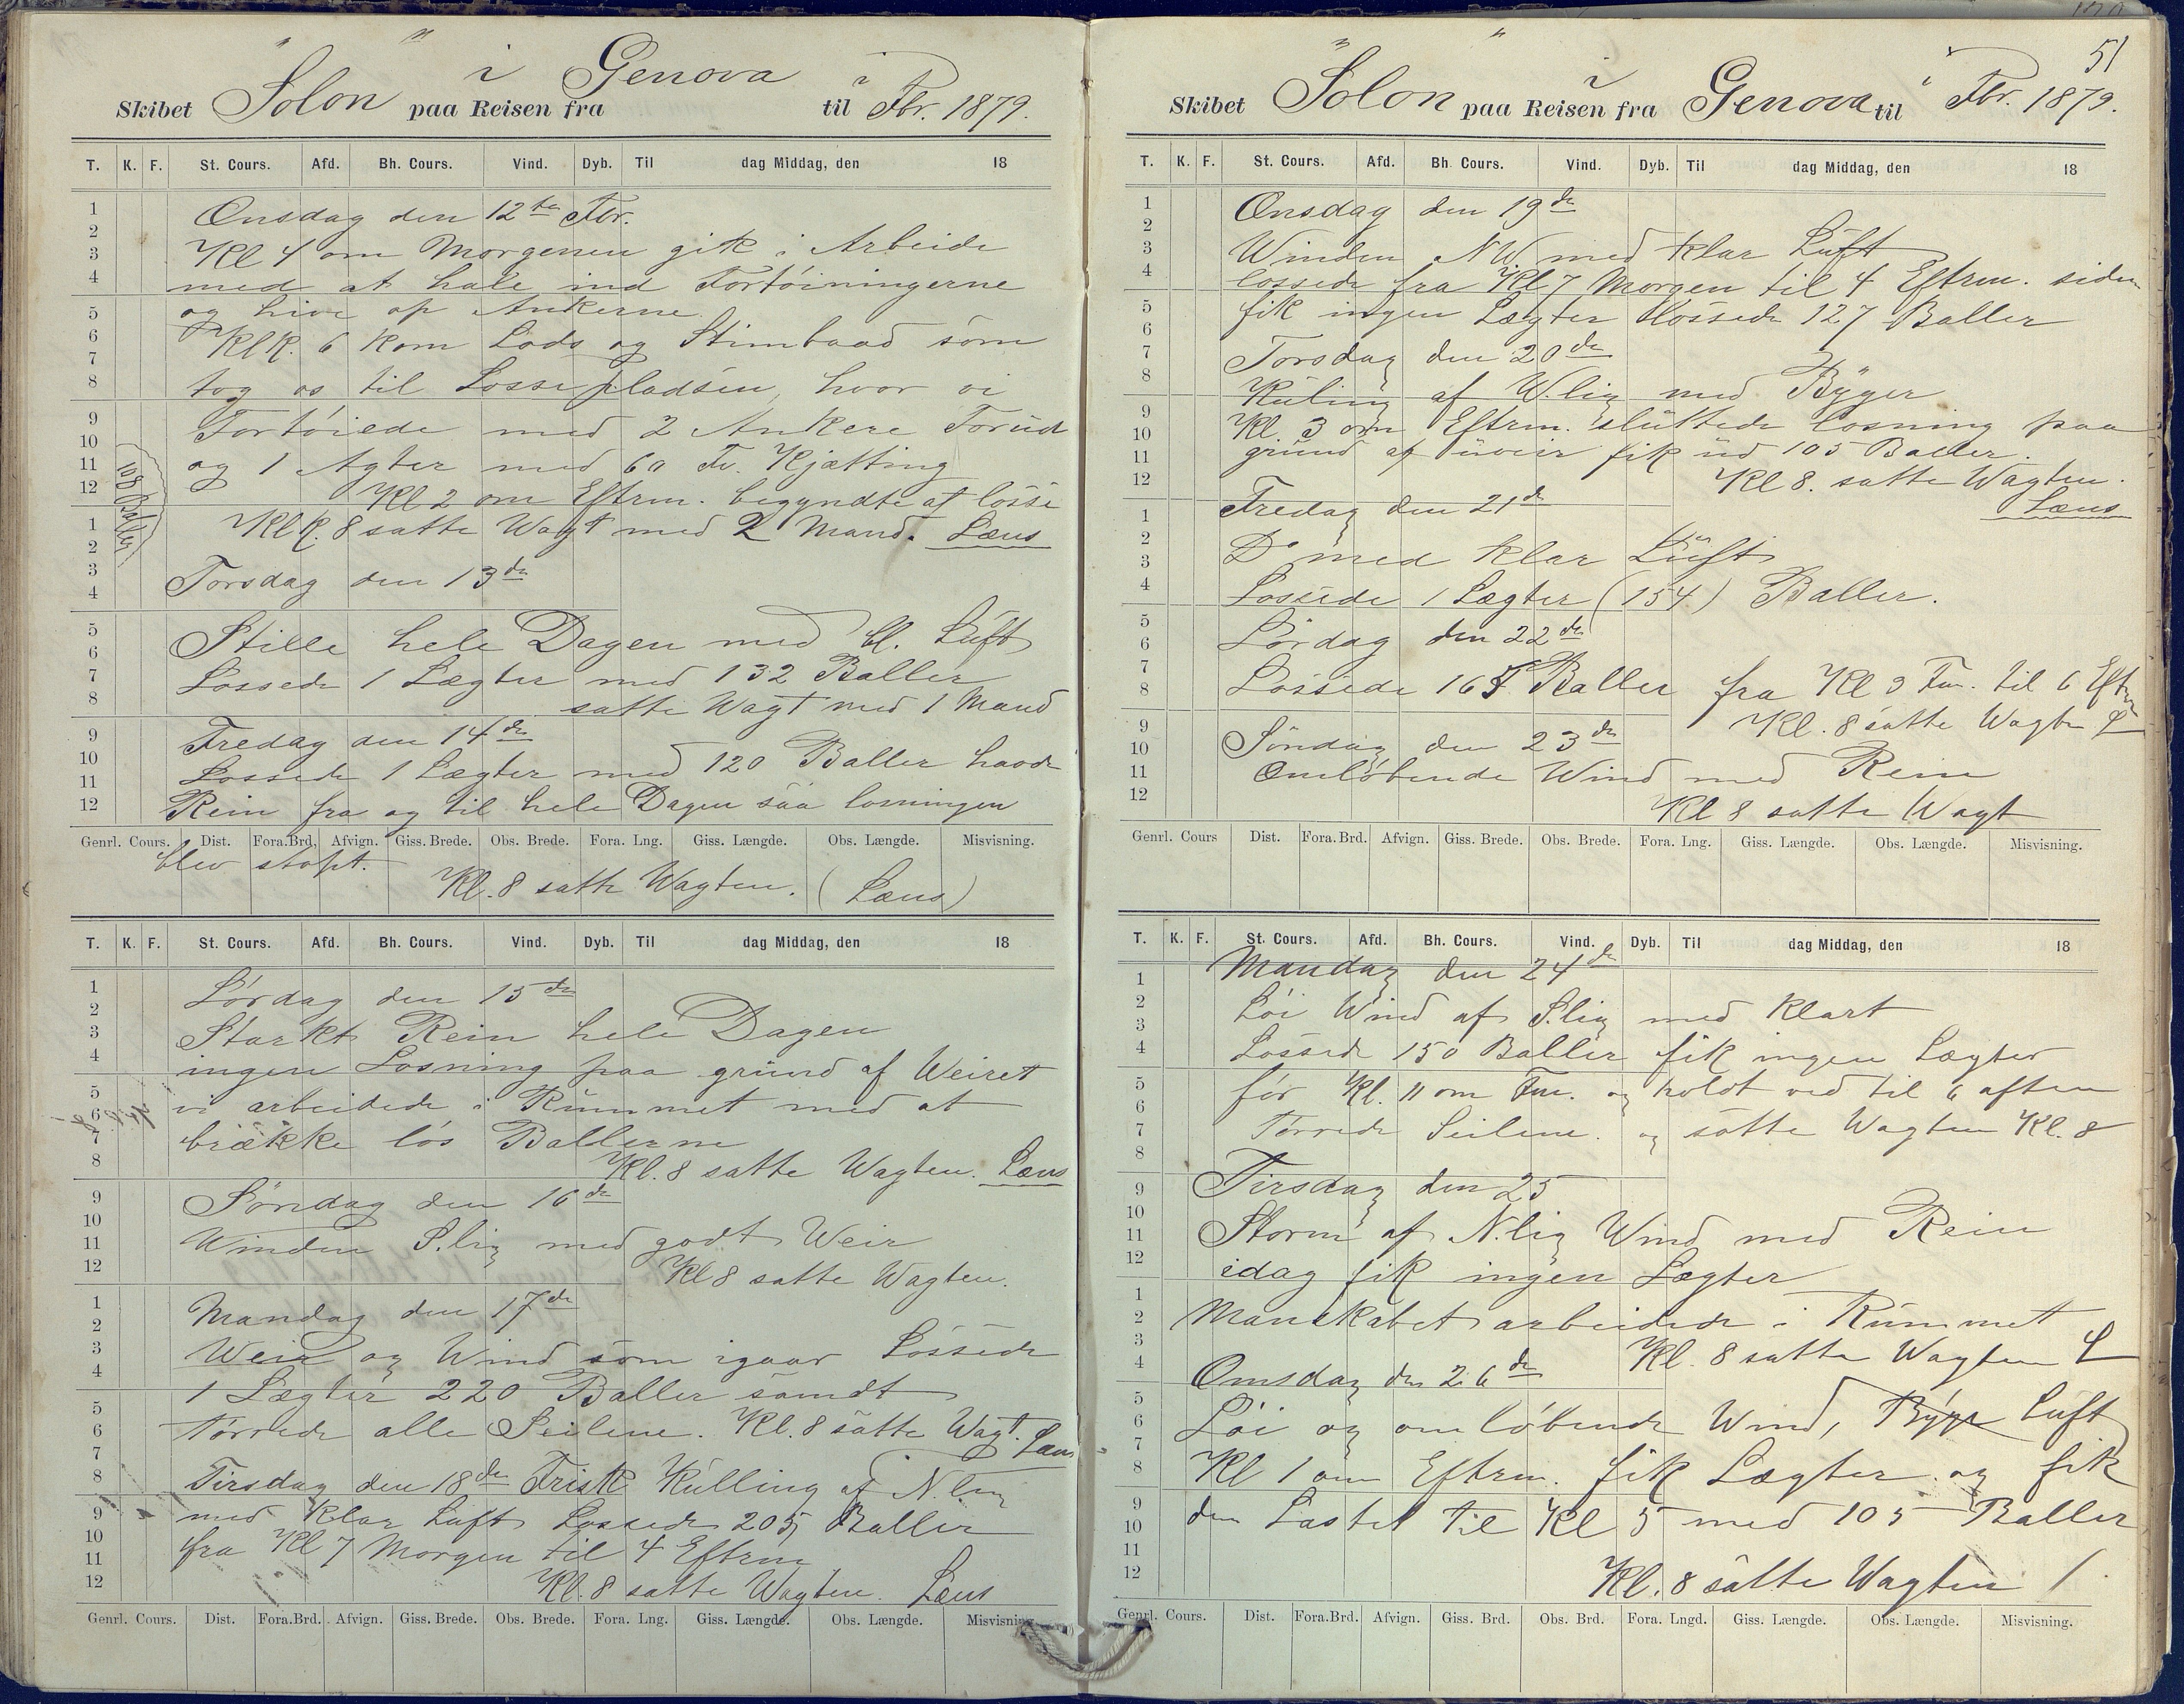 Skibet "Solon" paa Reisen fra i Genova til i Fbr. 1879.
T. K. F. St. Cours. Afd. Bh. Cours. Vind. Dyb. Til dag Middag, den 18
1
2
3
4
5
6
7
8
9
10
11
12
1
2
3
4
5
6
7
8
9
10
11
12
Onsdag den 12te Fbr.
Kl 4 om Morgenen gik i Arbeide
med at hale ind Fortöiningerne
og hive op Ankerne
Klk. 6 kom Lods og Stimbaad som
tog os til Lossepladsen, hvor vi
Fortöiede med 2 Ankere Forud
og 1 Agter med 60 Fv. Kjætting
108 Baller
Kl 2 om Eftrm. begyndte at losse
Klk. 8 satte Wagt med 2 Mand. Læns
Torsdag den 13de
Stille hele Dagen med kl. Luft
Lossede 1 Lægter med 132 Baller
satte Wagt med 1 Mand
Fredag den 14de
Lossede 1 Lægter med 120 Baller havde
Rein fra og til hele Dagen saa losningen
Genrl. Cours. Dist. Fora.Brd. Afvign. Giss. Brede. Obs. Brede. Fora. Lng. Giss. Længde. Obs. Længde. Misvisning.
blev stopt.
Kl. 8 satte Wagten. (Læns)
T. K. F. St. Cours. Afd. Bh. Cours. Vind. Dyb. Til dag Middag, den 18
1
2
3
4
5
6
7
8
9
10
11
12
1
2
3
4
5
6
7
8
9
10
11
12
Lördag den 15de
Starkt Rein hele Dagen
ingen Losning paa grund af Weiret
vi arbeidede i Rummet med at
brække lös Ballerne
Kl. 8 satte Wagten. Læns
Söndag den 16de
Winden S.lig med godt Weir
Kl 8 satte Wagten.
Mandag den 17de
Weir og Wind som igaar Lossede
1 Lægter 220 Baller samdt
törrede alle Seilene. Kl. 8 satte Wagt. Læns
Tirsdag den 18de Frisk Kulling af N.lig
med klar Luft Lossede 205 Baller
fra Kl 7 Morgen til 4 Eftrm
Kl. 8 satte Wagten. Læns
Genrl. Cours. Dist. Fora.Brd. Afvign. Giss. Brede. Obs. Brede. Fora. Lng. Giss. Længde. Obs. Længde. Misvisning.
51
Skibet "Solon" paa Reisen fra i Genova til i Fbr. 1879.
T. K. F. St. Cours. Afd. Bh. Cours. Vind. Dyb. Til dag Middag, den 18
1
2
3
4
5
6
7
8
9
10
11
12
1
2
3
4
5
6
7
8
9
10
11
12
Onsdag den 19de
Winden NW. med klar Luft
lossede fra Kl 7 Morgen til 4 Eftrm. siden
fik ingen Lægter Lossede 127 Baller
Torsdag den 20de
Kuling af W.lig med Byger
Kl. 3 om Eftrm. sluttede losning paa
grund af uveir fik ud 105 Baller.
Kl 8. satte Wagten.
Læns
Fredag den 21de
Do med klar Luft
Lossede 1 Lægter (154) Baller.
Lördag den 22de
Lossede 165 Baller fra Kl 9 Fm. til 6 Eftrm
Kl. 8 satte Wagten L
Söndag den 23de
Omlöbende Wind med Rein
Kl 8 satte Wagt
Genrl. Cours Dist. Fora.Brd. Afvign. Giss. Brede. Obs. Brede. Fora. Lng. Giss. Længde. Obs. Længde. Misvisning.
T. K. F. St. Cours. Afd. Bh. Cours. Vind. Dyb. Til dag Middag, den 18
1
2
3
4
5
6
7
8
9
10
11
12
1
2
3
4
5
6
7
8
9
10
11
12
Mandag den 24de
Löi Wind af S.lig med klart
Lossede 150 Baller fik ingen Lægter
för Kl. 11 om Fm. og holdt ved til 6 aften
Törrede Seilene. og satte Wagten Kl. 8
Tirsdag den 25
Storm af N.lig Wind med Rein
idag fik ingen Lægter
Manskabet arbeidede i Rummet
Kl. 8 satte Wagten L
Onsdag den 26de
Löi og omlöbende Wind, Byge Luft
Kl 1 om Eftrm. fik Lægter og fik
den Lastet til Kl 5 med 105 Baller
Kl. 8 satte Wagten
Genrl. Cours. Dist. Fora.Brd. Afvign. Giss. Brd. Obs. Brd. Fora. Lngd. Giss. Længde. Obs. Længde. Misvisning.